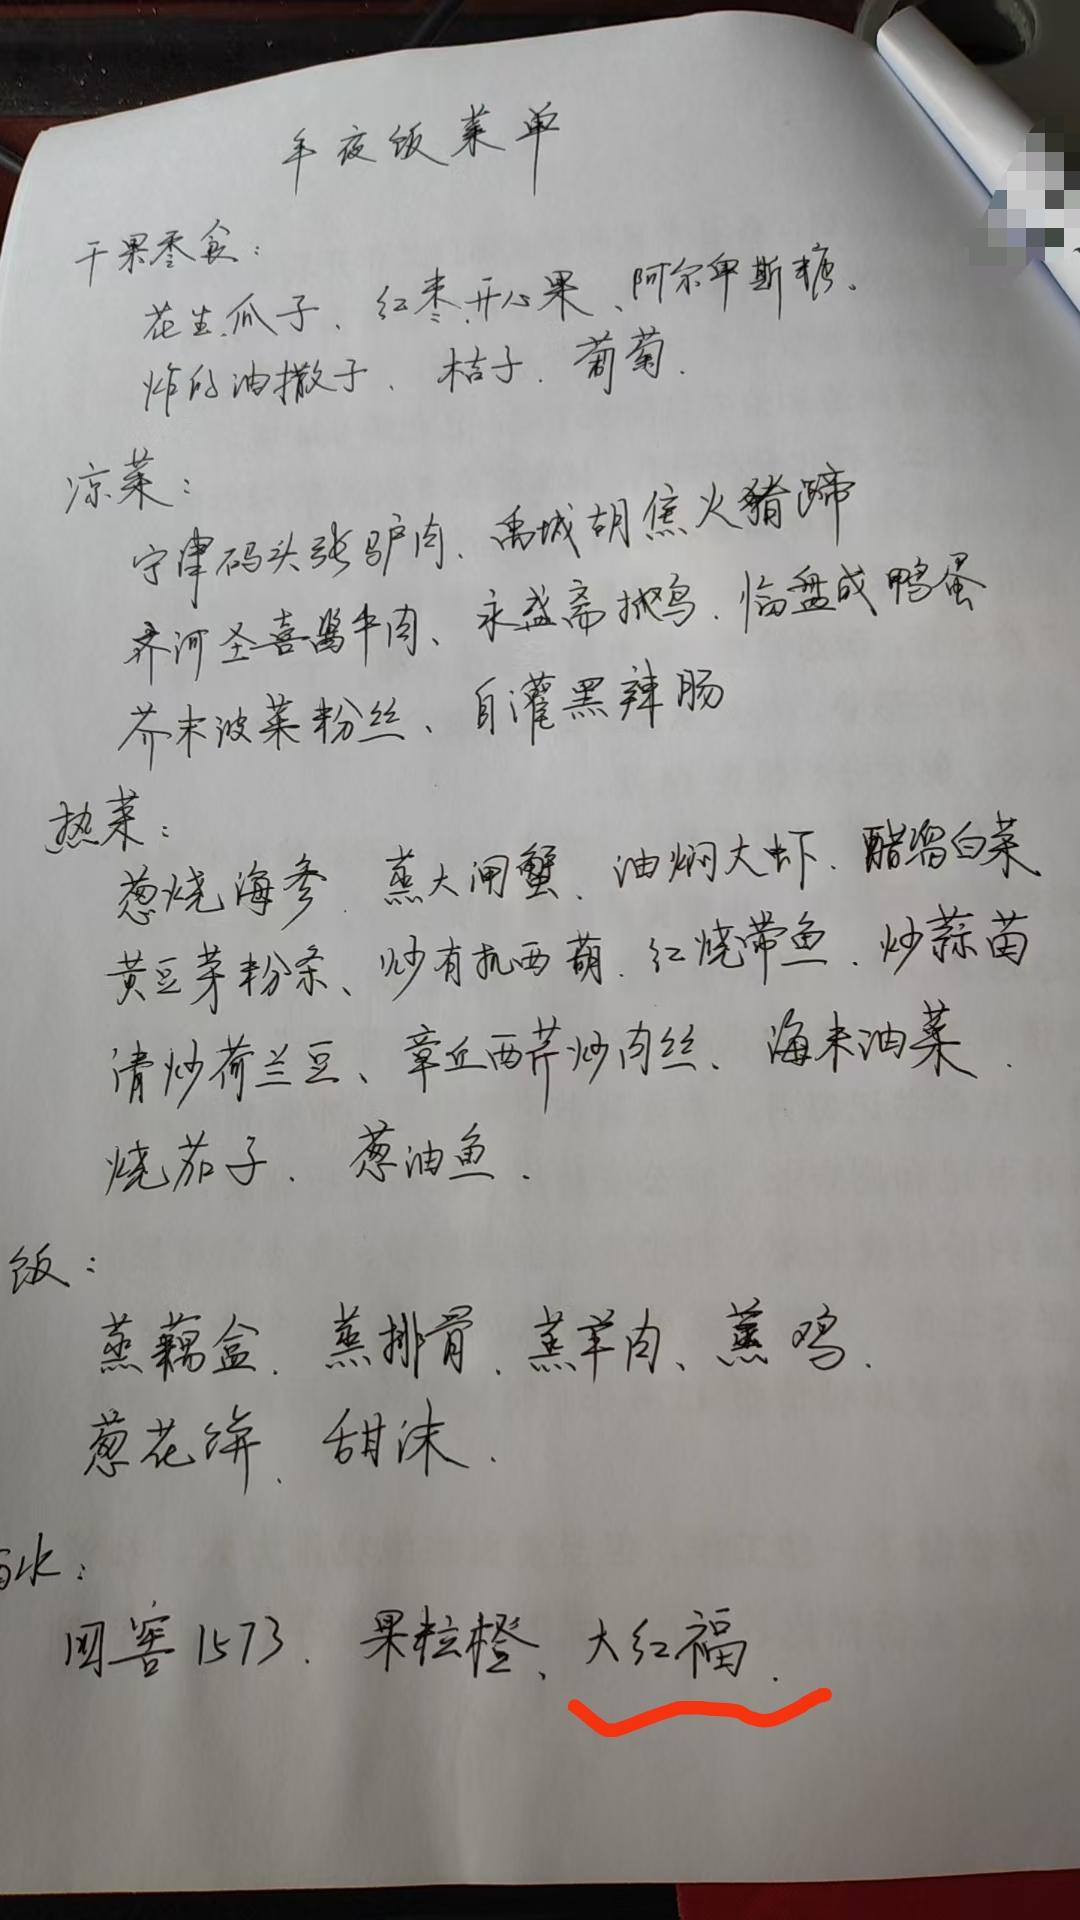 年夜饭菜单
干果零食：
花生、瓜子、红枣、开心果、阿尔卑斯糖、
炸的油撒子、桔子、葡萄.
凉菜：
宁津码头张驴肉、禹城胡焦火猪蹄
齐河圣喜酱牛肉、永盛斋扒鸡、临盘咸鸭蛋
芥末波菜粉丝、自灌黑辣肠
热菜：
葱烧海参、蒸大闸蟹、油焖大虾、醋溜白菜
黄豆芽粉条、炒有机西葫、红烧带鱼、炒蒜苗
清炒荷兰豆、章丘西芹炒肉丝、海米油菜.
烧茄子、葱油鱼.
饭：
蒸藕盒、蒸排骨、蒸羊肉、蒸鸡、
葱花饼、甜沫.
水：
国窖1573、果粒橙、大红福.